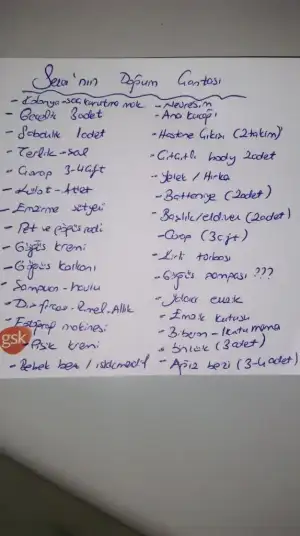 Seza'nın Doğum Çantası
- Kolonya-saç kurutma mak.
- Gecelik 3adet
- Sabahlık 1adet
- Terlik-şal
- Çorap 3-4çift
- Külot-Atlet
- Emzirme sütyeni
- Pet ve göğüs pedi
- Göğüs kremi
- Göğüs kalkanı
- Şampuan-havlu
- Diş fırçası-Rimel-Allık
- Fotoğraf makinesi
- Pişik kremi
- Bebek bezi / ıslak mendil
gsk
- Nevresim
- Ana kucağı
- Hastane Çıkışı (2takım)
- Çıtçıtlı body 2adet
- Yelek / Hırka
- Battaniye (2adet)
- Başlık/eldiven (2adet)
- Çorap (3çift)
- Kirli torbası
- Göğüs pompası ???
- Yalancı emzik
- Emzik kutusu
- Biberon - kutu mama
- önlük (3adet)
- Ağız bezi (3-4adet)